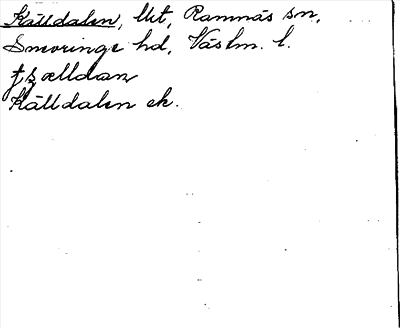 Källdalen, lht, Ramnäs sn,
Snevringe hd, Västm. l.
ɟʂælldan
Källdalen ek.